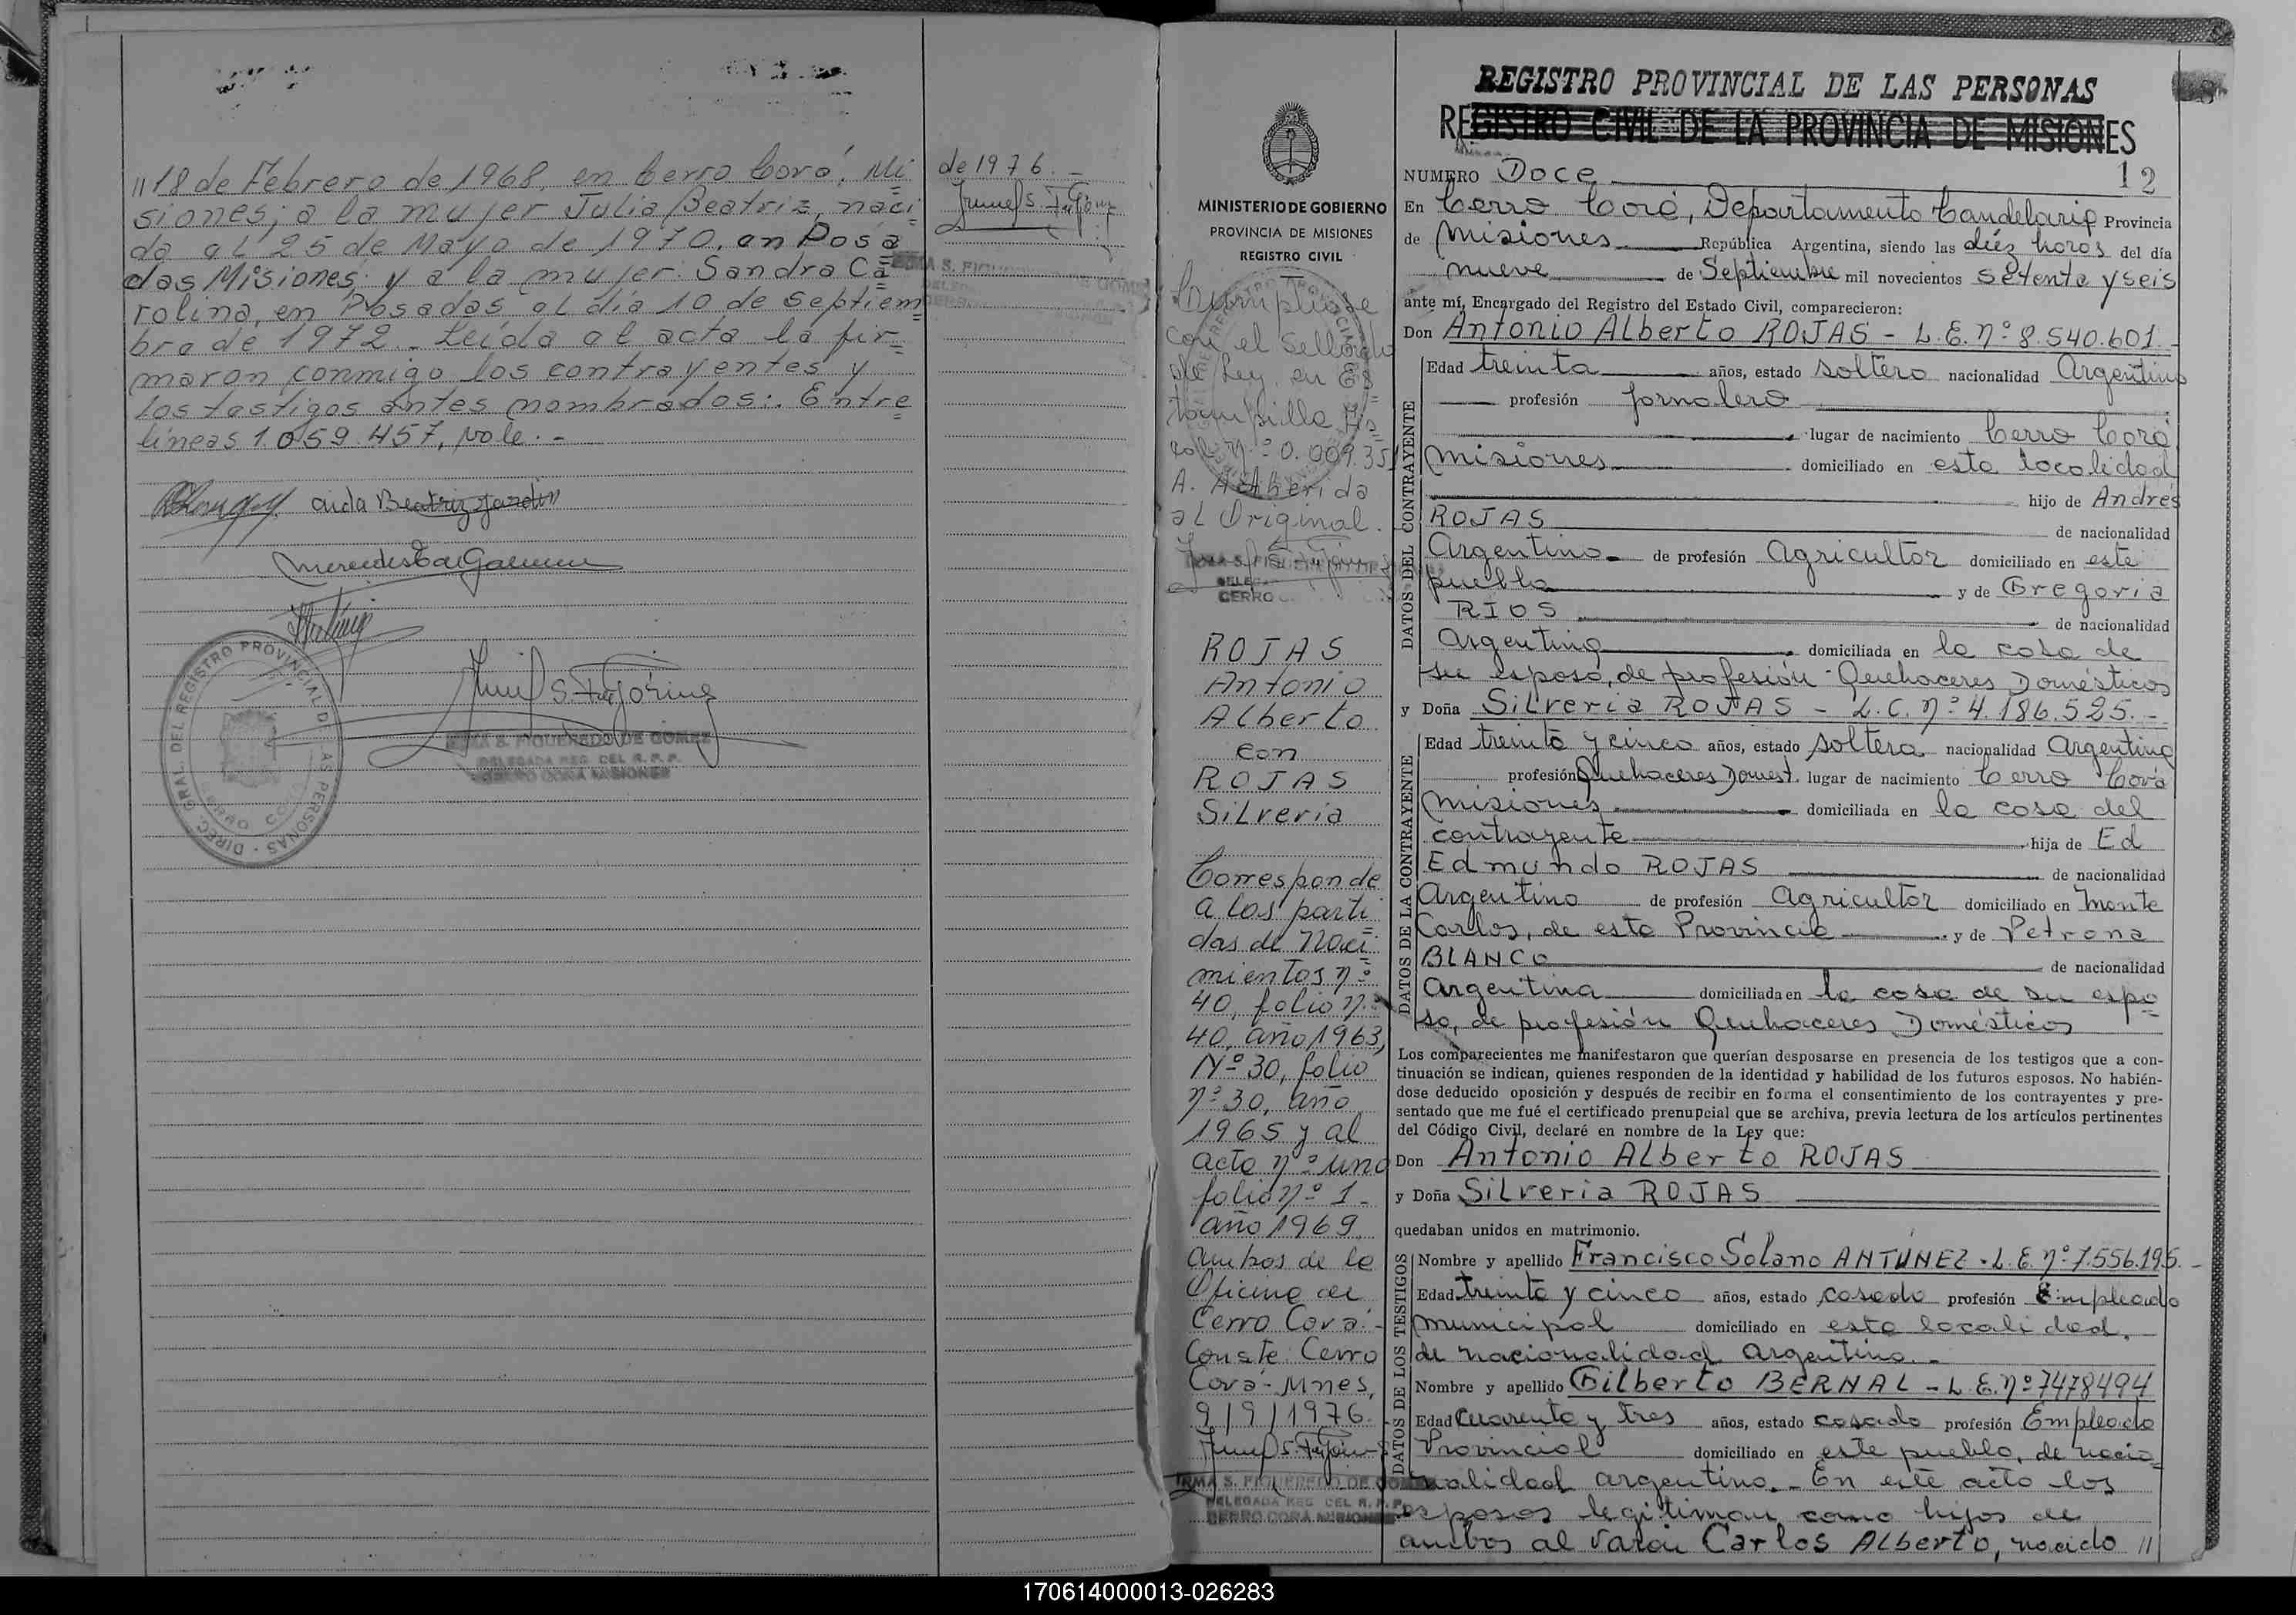 "18 de Febrero de 1968, en Cerro Corá, Mi=
siones; a la mujer Julia Beatriz, naci=
da el 25 de Mayo de 1970, en Posa=
das Misiones; y a la mujer: Sandra Ca=
rolina, en Posadas el día 10 de Septiem=
bre de 1972.- Leída el acta la fir=
maron conmigo los contrayentes y
los testigos antes nombrados:. Entre
líneas 1.059.457, Vale.-
Aida Beatriz Jardin
IRMA S. FIGUEREDO DE GOMEZ
DELEGADA REG. DEL R. P. P.
CERRO CORA MISIONES
DIREC. GRAL. DEL REGISTRO PROVINCIAL DE LAS PERSONAS
CERRO CORA
de 1976.-
MINISTERIO DE GOBIERNO
PROVINCIA DE MISIONES
REGISTRO CIVIL
Cumplióse
con el Sellado
de Ley, en Es=
tampilla Fis=
cal Nº 0.009.351
A. Adherida
al Original.
ROJAS
Antonio
Alberto
con
ROJAS
Silveria
Corresponde
a las parti=
das de Naci=
mientos nº
40, folio nº
40, año 1963,
Nº 30, folio
nº 30, año
1965 y al
acta nº uno
folio nº 1-
año 1969
ambos de la
Oficina de
Cerro Corá.-
Conste. Cerro
Corá- Mnes,
9/9/1976.
IRMA S. FIGUEREDO DE GOMEZ
DELEGADA REG. DEL R. P. P.
CERRO CORA MISIONES
REGISTRO PROVINCIAL DE LAS PERSONAS
REGISTRO CIVIL DE LA PROVINCIA DE MISIONES
NUMERO Doce 12
En Cerro Corá, Departamento Candelaria Provincia
de Misiones República Argentina, siendo las diéz horas del día
nueve de Septiembre mil novecientos setenta y seis
ante mí, Encargado del Registro del Estado Civil, comparecieron:
Don Antonio Alberto ROJAS - L.E. nº 8.540.601.-
DATOS DEL CONTRAYENTE
Edad treinta años, estado soltero nacionalidad Argentino
profesión Jornalero
lugar de nacimiento Cerro Corá
Misiones domiciliado en esta localidad
hijo de Andrés
ROJAS de nacionalidad
Argentino- de profesión Agricultor domiciliado en este
pueblo y de Gregoria
RIOS de nacionalidad
argentina domiciliada en la casa de
su esposo, de profesión - Quehaceres Domésticos
y Doña Silveria ROJAS - L.C. nº 4.186.525.-
DATOS DE LA CONTRAYENTE
Edad treinta y cinco años, estado soltera nacionalidad Argentina
profesión Quehaceres Domest. lugar de nacimiento Cerro Corá
Misiones domiciliada en la casa del
contrayente hija de Ed
Edmundo ROJAS de nacionalidad
Argentino de profesión Agricultor domiciliado en Monte
Carlos, de esta Provincia y de Petrona
BLANCO de nacionalidad
Argentina domiciliada en la casa de su espo=
so, de profesión Quehaceres Domésticos
Los comparecientes me manifestaron que querían desposarse en presencia de los testigos que a con-
tinuación se indican, quienes responden de la identidad y habilidad de los futuros esposos. No habién-
dose deducido oposición y después de recibir en forma el consentimiento de los contrayentes y pre-
sentado que me fué el certificado prenupcial que se archiva, previa lectura de los artículos pertinentes
del Código Civil, declaré en nombre de la Ley que:
Don Antonio Alberto ROJAS
y Doña Silveria ROJAS
quedaban unidos en matrimonio.
DATOS DE LOS TESTIGOS
Nombre y apellido Francisco Solano ANTUNEZ - L.E. nº 7.556.195.-
Edad treinta y cinco años, estado casado profesión Empleado
Municipal domiciliado en esta localidad.
de nacionalidad argentina.-
Nombre y apellido Gilberto BERNAL - L.E. nº 7478494
Edad Cuarenta y tres años, estado casado profesión Empleado
Provincial domiciliado en este pueblo, de nacio=
nalidad argentina.- En este acto los
esposos legitiman como hijos de
ambos al varón Carlos Alberto, nacido "
170614000013-026283